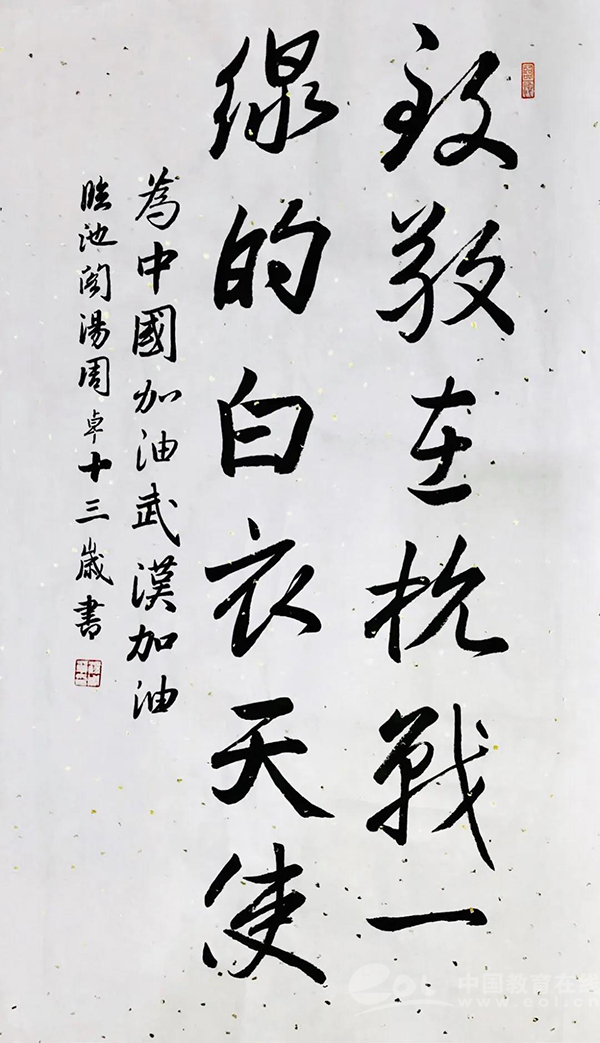 致敬在抗戰一
線的白衣天使
為中國加油武漢加油
臨池阁湯周卓十三歲書
eol 中国教育在线
www.eol.cn